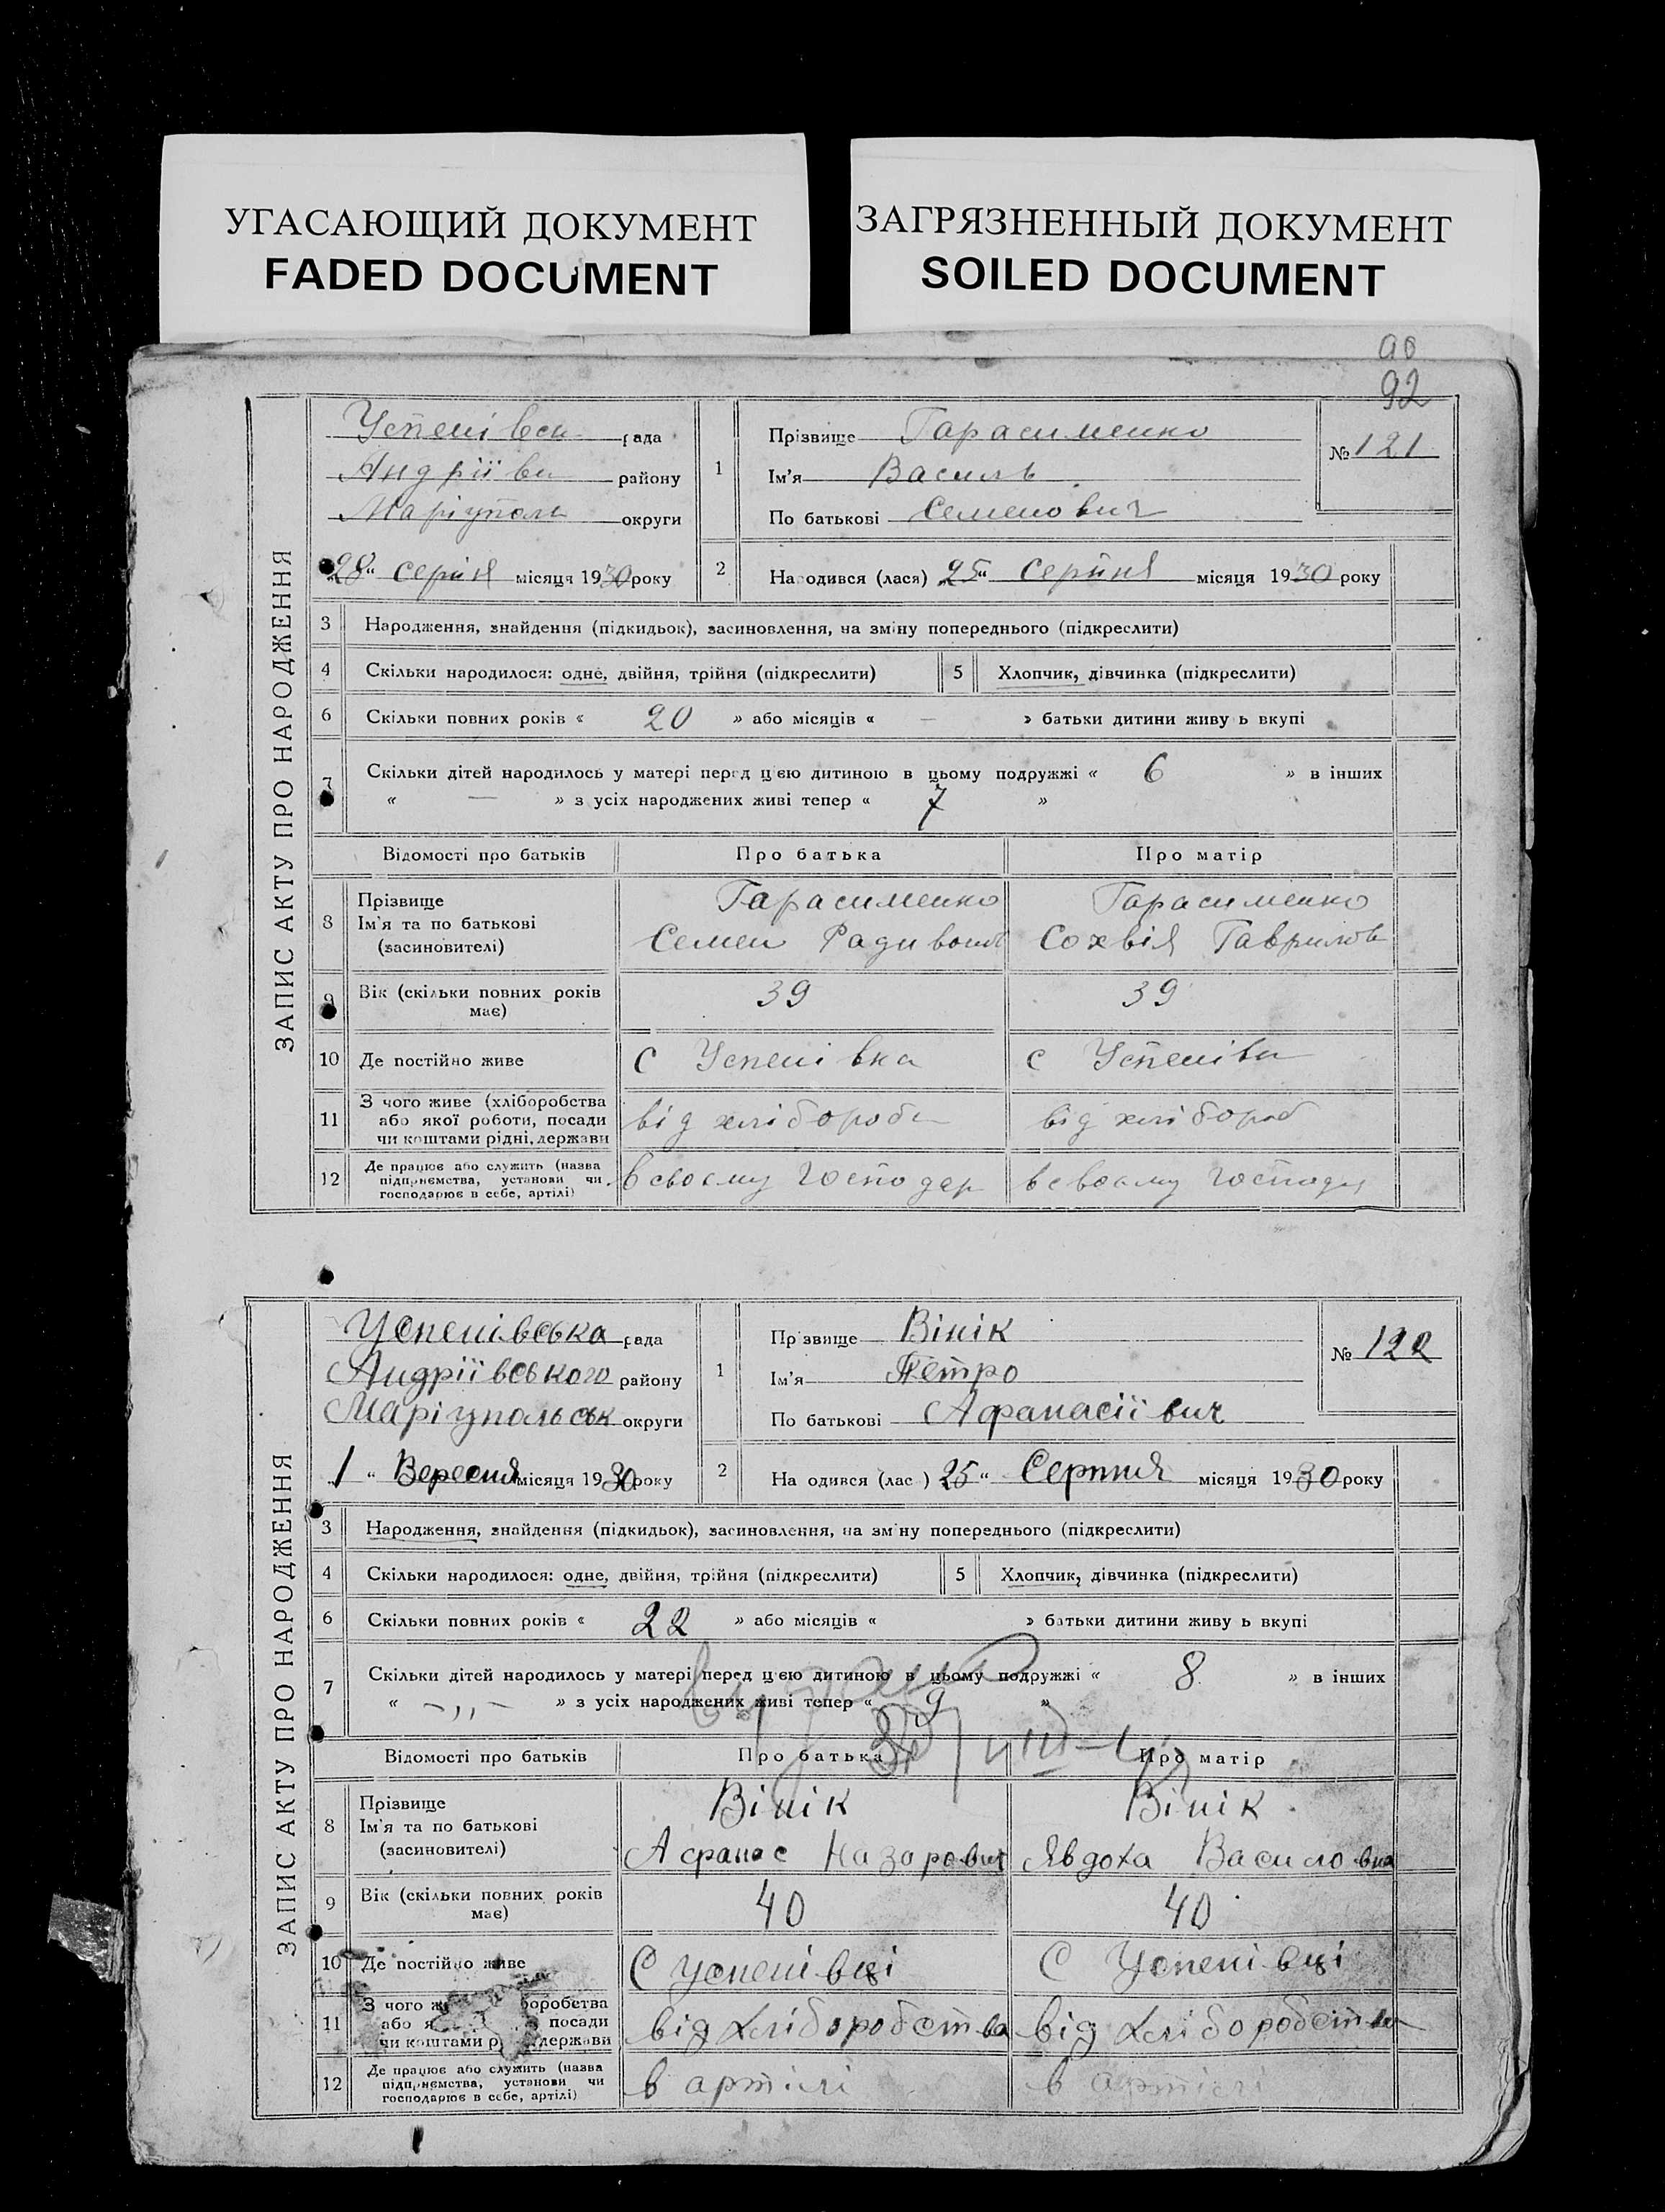 УГАСАЮЩИЙ ДОКУМЕНТ
FADED DOCUMENT
ЗАГРЯЗНЕННЫЙ ДОКУМЕНТ
SOILED DOCUMENT
92
ЗАПИС АКТУ ПРО НАРОДЖЕННЯ
Успенівськ рада
Андріївськ району
Маріуполь округи
„28“ серпня місяця 1930 року
1 Прізвище Гарасименко
Ім'я Василь
По батькові Семенович
№ 121
2 Народився (лася) „25“ Серпня місяця 1930 року
3 Народження, знайдення (підкидьок), засиновлення, на зміну попереднього (підкреслити)
4 Скільки народилося: одне, двійня, трійня (підкреслити) 5 Хлопчик, дівчинка (підкреслити)
6 Скільки повних років « 20 » або місяців « — » батьки дитини живуть вкупі
7 Скільки дітей народилось у матері перед цією дитиною в цьому подружжі « 6 » в інших
« — » з усіх народжених живі тепер « 7 »
Відомості про батьків Про батька Про матір
8 Прізвище
Ім'я та по батькові
(засиновителі)
Гарасименко
Семен Радивон
Гарасименко
Сохвія Гаврилов
9 Вік (скільки повних років має) 39 39
10 Де постійно живе с Успенівка с Успенівк
11 З чого живе (хліборобства
або якої роботи, посади
чи коштами рідні, держави
від хлібороб від хлібороб
12 Де працює або служить (назва
підприємства, установи чи
господарює в себе, артілі)
в своєму господар в своєму господ
ЗАПИС АКТУ ПРО НАРОДЖЕННЯ
Успенівська рада
Андріївського району
Маріупольськ округи
1 “ Вересня місяця 1930 року
1 Прізвище Вінік
Ім'я Петро
По батькові Афанасіївич
№ 122
2 На одився (лас ) 25 “ Серпня місяця 1930 року
3 Народження, знайдення (підкидьок), засиновлення, на зміну попереднього (підкреслити)
4 Скільки народилося: одне, двійня, трійня (підкреслити) 5 Хлопчик, дівчинка (підкреслити)
6 Скільки повних років « 22 » або місяців « » батьки дитини живу ь вкупі
7 Скільки дітей народилось у матері перед цією дитиною в цьому подружжі « 8 » в інших
« -„- » з усіх народжених живі тепер « 9 »
Відомості про батьків Про батька Про матір
8 Прізвище
Ім'я та по батькові
(засиновителі)
Вінік
Афанас Назарович
Вінік
Явдоха Василовна
9 Вік (скільки повних років має) 40 40
10 Де постійно живе С Успенівці С Успенівці
11 З чого ж боробства
або я посади
чи коштами р держави
від хліборобства від хліборобства
12 Де працює або служить (назва
підприємства, установи чи
господарює в себе, артілі)
в артілі в артілі